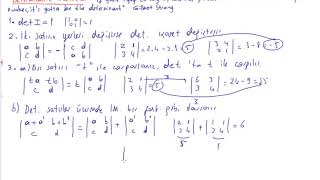 number, it's gotta be the determinant" Gilbert Strang
1. det I = 1 |1 0; 0 1| = 1
2. İki satırın yerleri değişirse det. işaret değiştirir.
|a b; c d| = - |c d; a b| |2 1; 3 4| = 2.4 - 3.1 = 5 |3 4; 2 1| = 3 - 8 = -5
3. a) Bir satırı "t" ile çarparsanız, det 'ta t ile çarpılır.
|ta tb; c d| = t |a b; c d| |2 1; 3 4| = 5 |6 3; 3 4| = 24 - 9 = 15
b) Det. satırlar üzerinde lin. bir fonk. gibi davranır
|a+a' b+b'; c d| = |a b; c d| + |a' b'; c d| |2 1; 3 4| + |1 1; 3 4| = 6
5 1